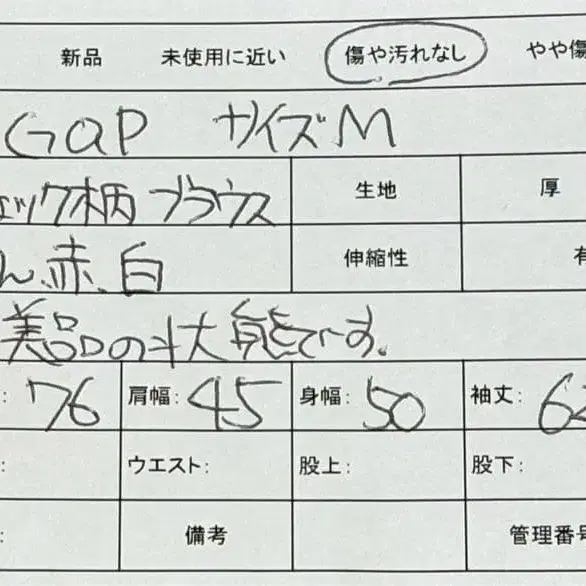 新品 未使用に近い 傷や汚れなし やや傷
GAP サイズM
ェック柄 ブラウス 生地 厚
ん、赤、白 伸縮性 有
美品の状態です。
: 76 肩幅: 45 身幅: 50 袖丈:
: ウエスト: 股上: 股下:
: 備考 管理番号